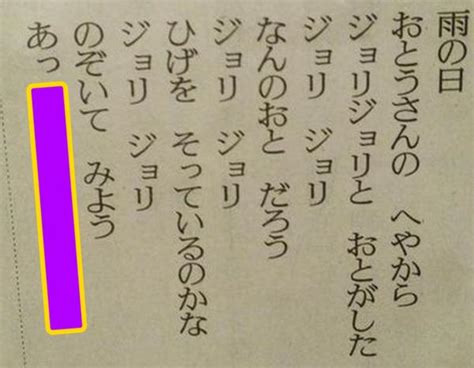 雨の日
おとうさんの　へやから
ジョリジョリと　おとがした
ジョリ　ジョリ
なんのおと　だろう
ジョリ　ジョリ
ひげを　そっているのかな
ジョリ　ジョリ
のぞいて　みよう
あっ